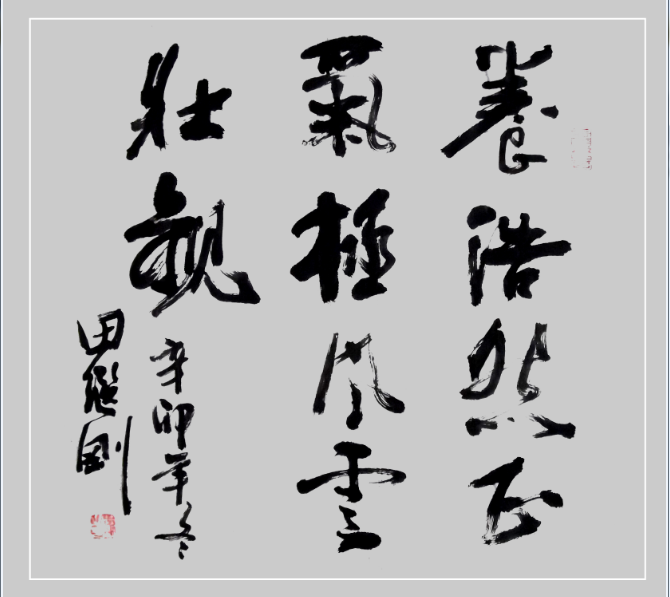 養浩然正
氣極風雲
壯觀
辛卯年冬
田繼剛